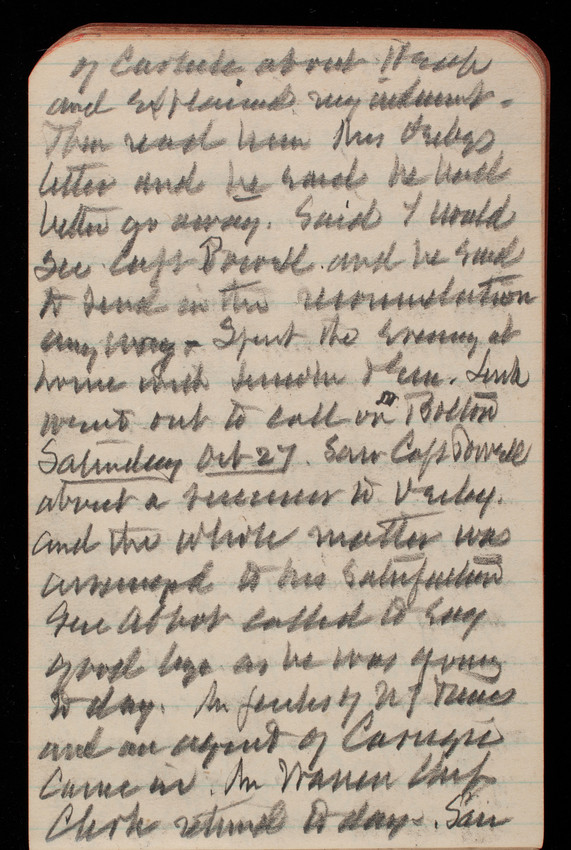 of Carlisle about Heap
and explained my indorsmt.
Then read him this Verbys
letter and he said he had
better go away. Said I would
see Capt Powell and he said
to send in the recommendation
any way - Spent the Evening at
home with
went out to call on Mr Bolton
Saturday Oct 27. Saw Capt Powell
about a successor to Verby.
and the whole matter was
arranged to his satisfaction
Gen Abbot called to say
good bye as he was going
to day. Mr of N Y Times
and an agent of Carnegie
came in. Mr Warren Chief
Clerk returned to day. Said